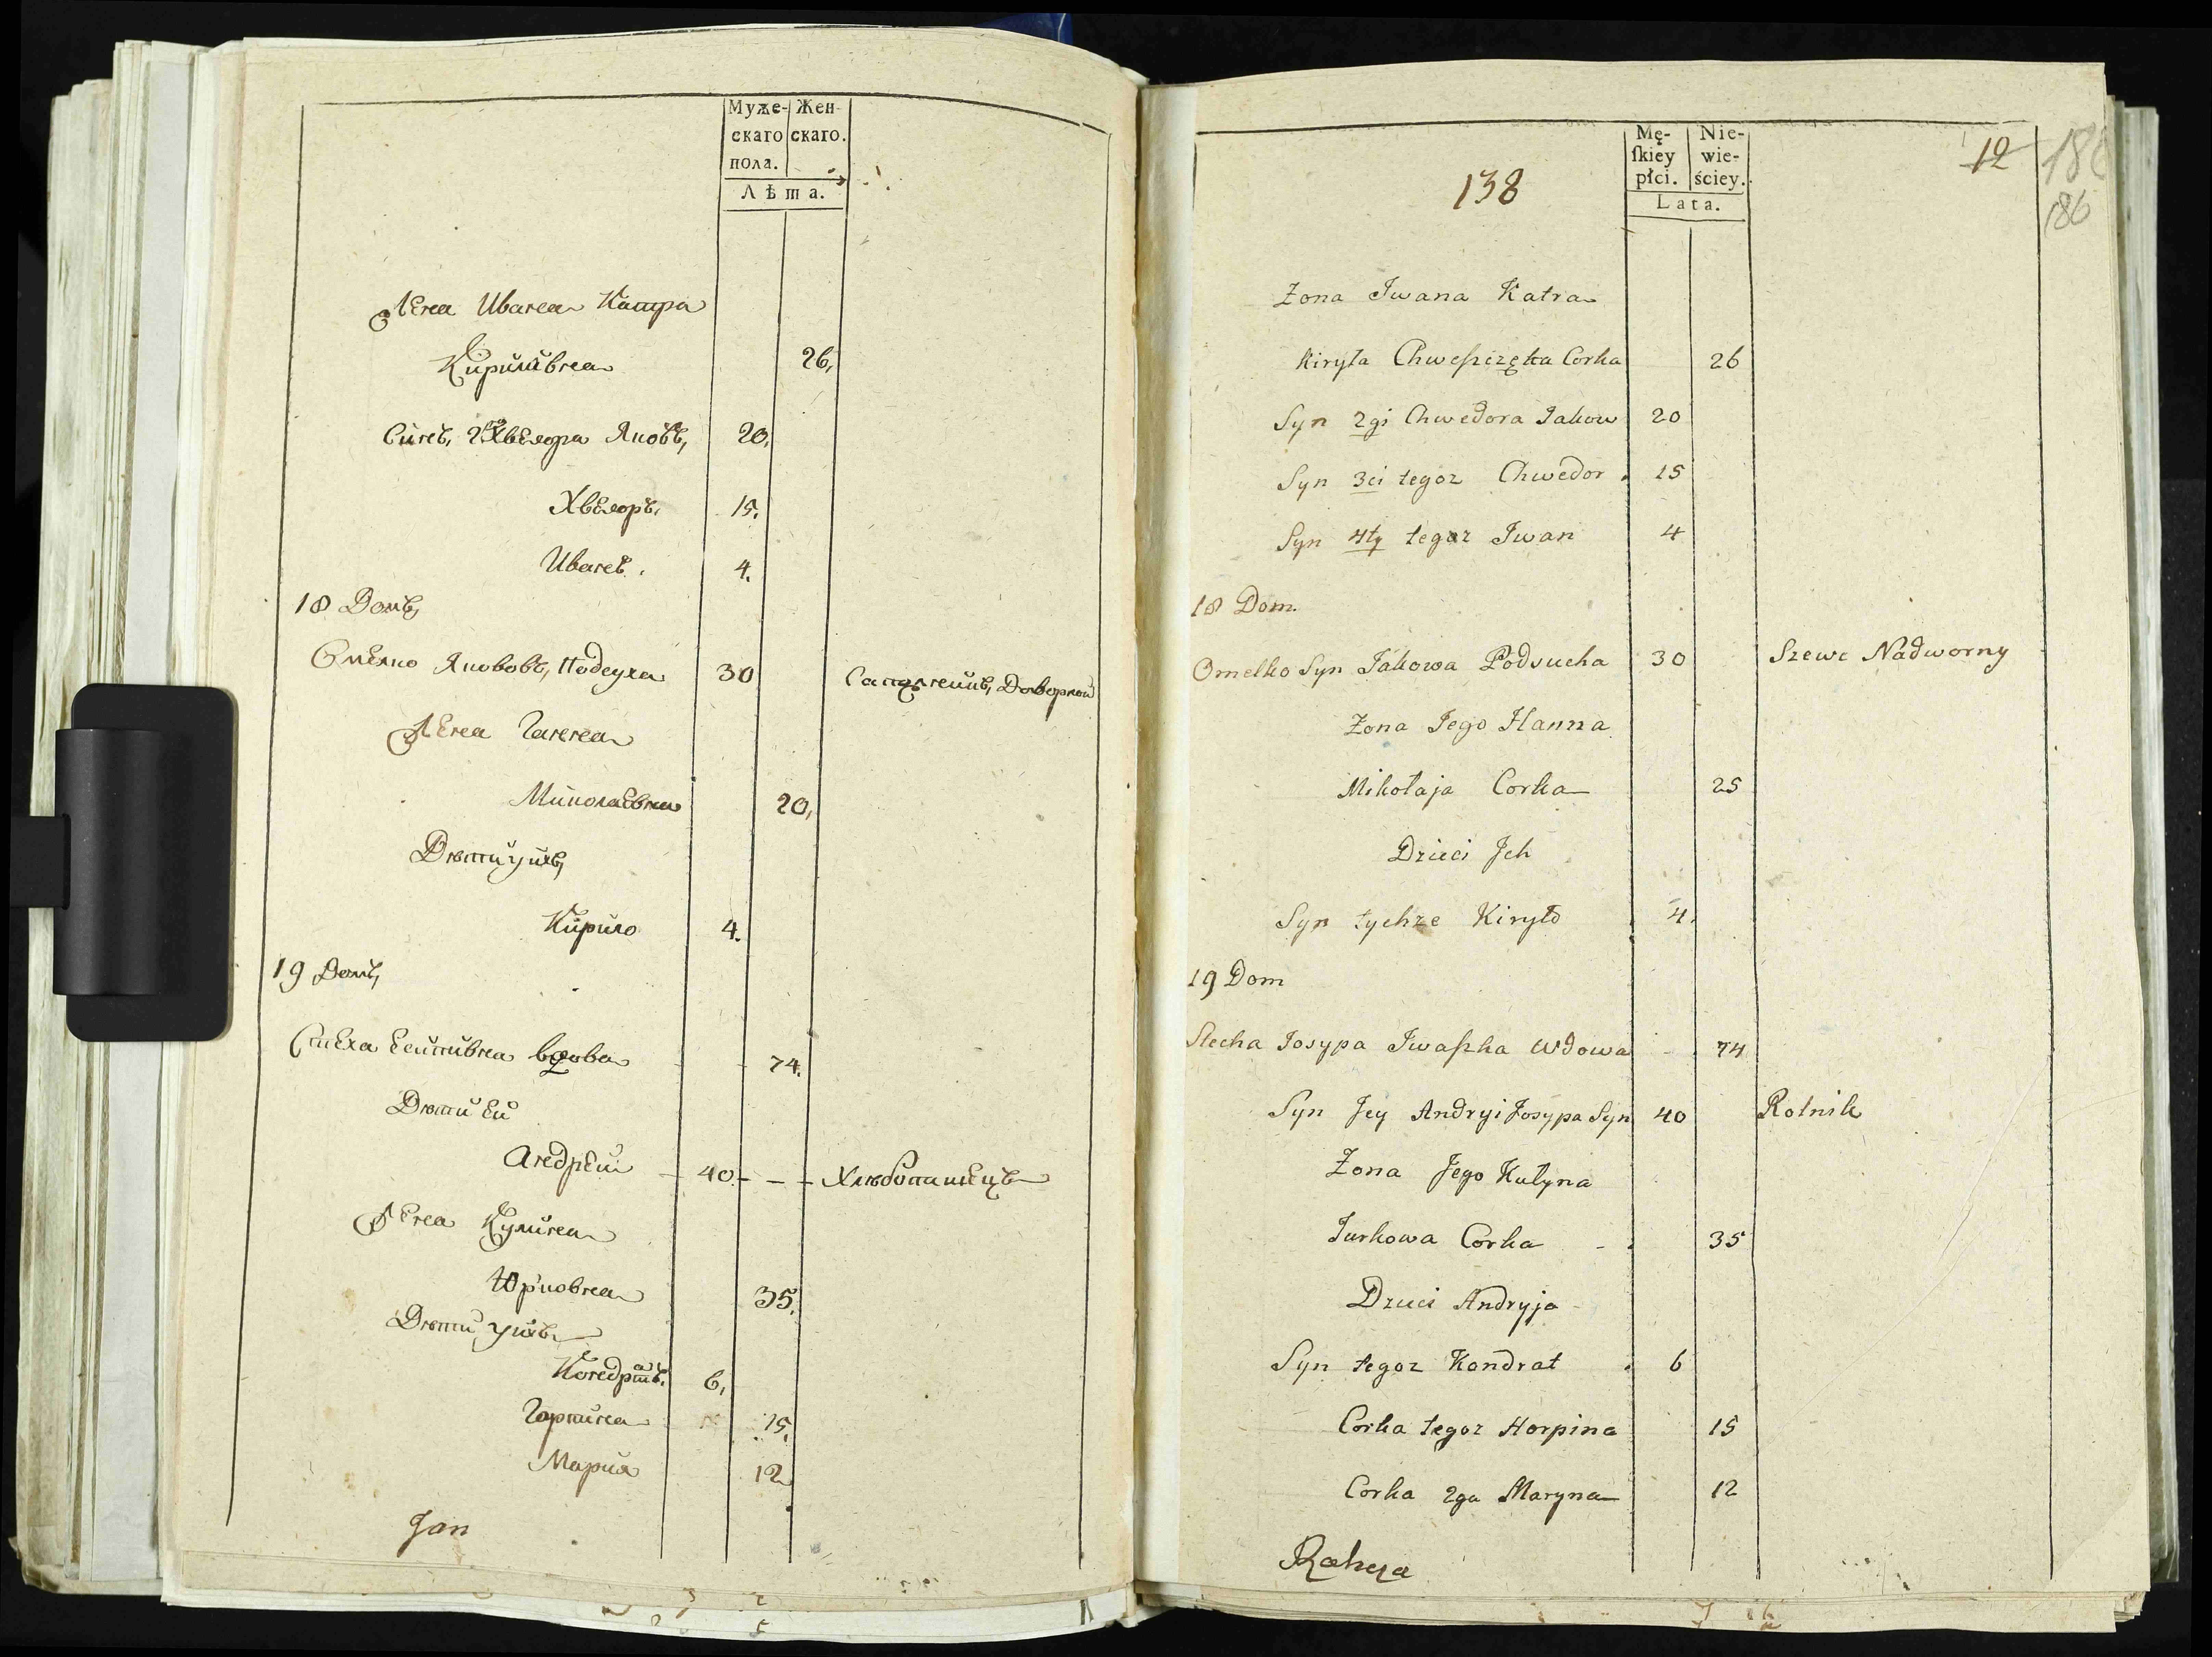 Муже- Жен-
скаго скаго.
пола.
Лѣта.
Жена Ивана Катра
Кирилiвна 26,
Синъ, 2й Хведора Яковъ, 20,
Хведоръ. 15.
Иванъ. 4.
18 Домъ,
Омелко Якововъ, Подсуха 30 Сапожникъ, Дворной
Жена Ганна
Миколаевна 20,
Дѣти ўихъ,
Кирило 4.
19 Домъ,
Стеха Есипивна вдова 74.
Дѣти Ей
Андрей 40. Хлѣбопашецъ
Жена Кулина
Юрковна 35.
Дѣти ўихъ
Кондратъ. 6,
Горпина 15.
Мария 12
Jan
12
186
186
138
Mę- Nie-
ſkiey wie-
płci. ściey.
Lata.
Zona Jwana Katra
Kiryła Corka 26
Syn 2gi Chwedora Jakow 20
Syn 3ci tegoz Chwedor 15
Syn 4ty tegoz Jwan 4
18 Dom.
Omelko Syn Jakowa Podsucha 30 Szewc Nadworny
Zona Jego Hanna
Mikołaja Corka 25
Dzieci Jch
Syn tychze Kiryło 4.
19 Dom
Stecha Josypa Jwaſzka Wdowa 74
Syn Jey Andryi Josypa Syn 40 Rolnik
Zona Jego Kulyna
Jurkowa Corka 35
Dzieci Andryja
Syn tegoz Kondrat 6
Corka tegoz Horpina 15
Corka 2ga Maryna 12